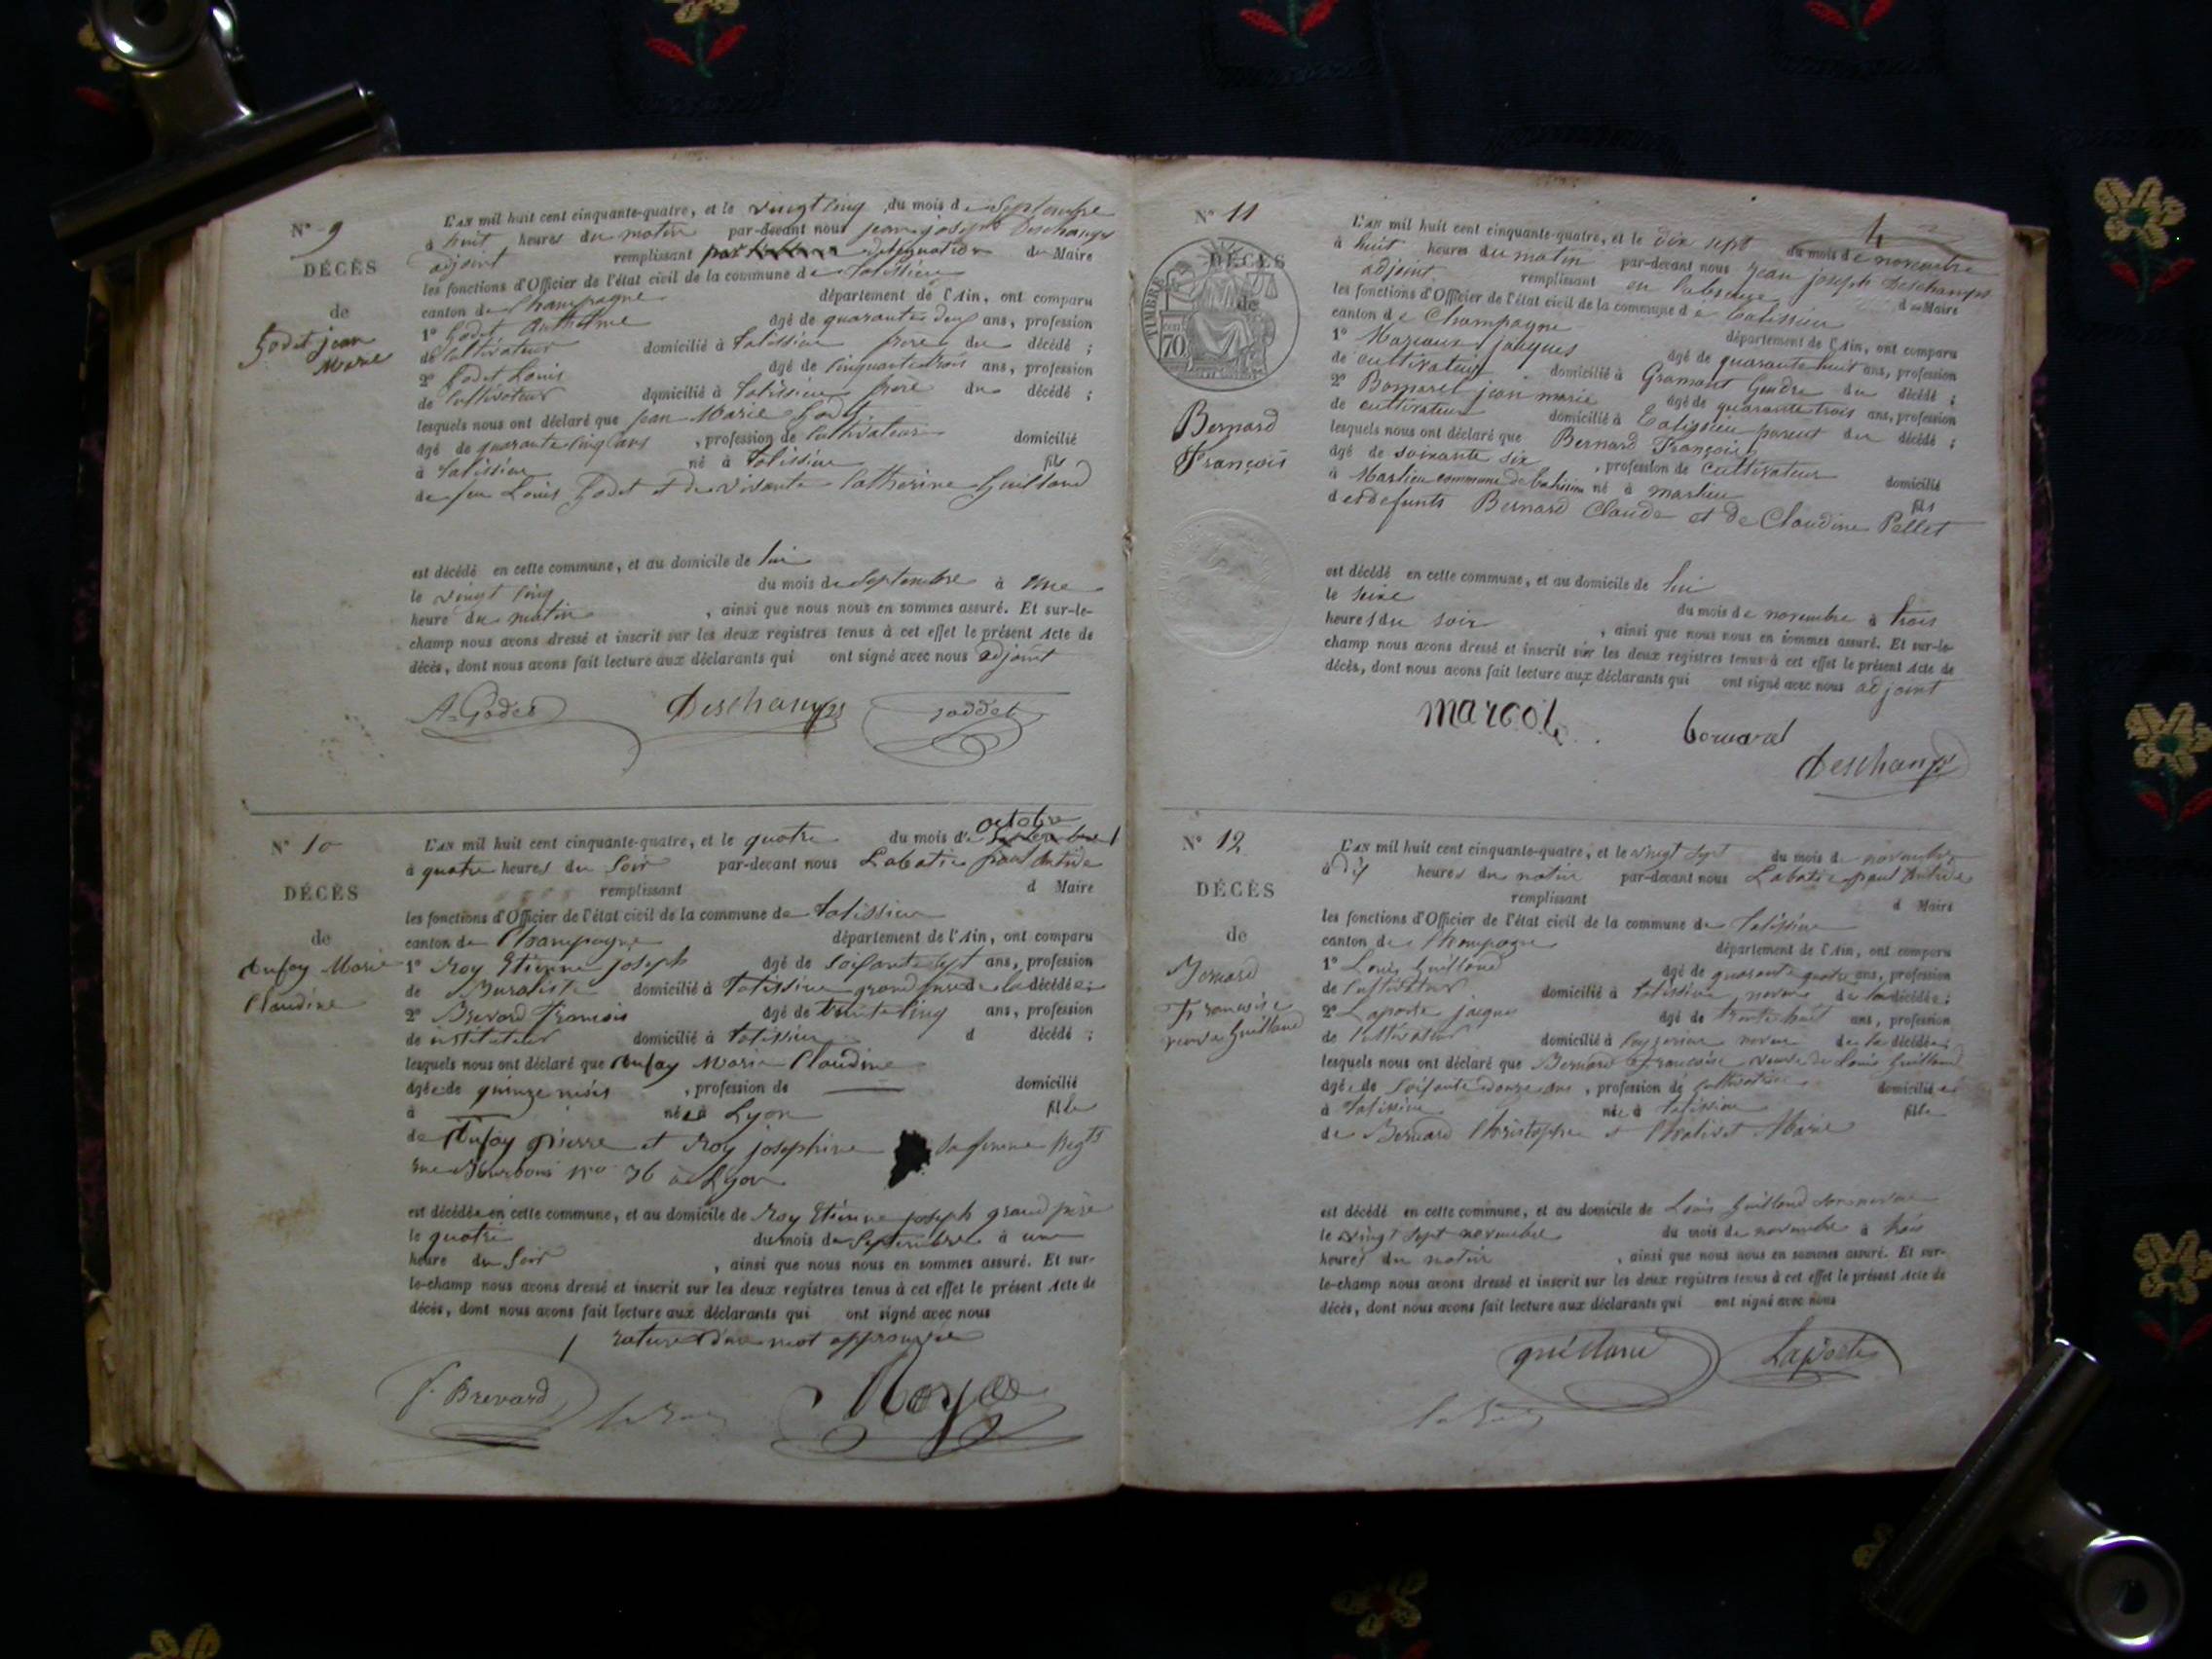 N° 9
DÉCÈS
de
Godet jean
Marie
L'AN mil huit cent cinquante-quatre, et le vingt cinq du mois de Septembre
à huit heures du matin par-devant nous jean joseph Deschamps
adjoint remplissant par délégation du Maire
les fonctions d'Officier de l'état civil de la commune de talissieu
canton de Champagne département de l'Ain, ont comparu
1° Godet Anthelme âgé de quarante deux ans, profession
de Cultivateur domicilié à talissieu frere du décédé ;
2° Godet Louis âgé de cinquante trois ans, profession
de Cultivateur domicilié à talissieu frere du décédé ;
lesquels nous ont déclaré que jean Marie Godet
âgé de quarante cinq ans , profession de Cultivateur domicilié
à talissieu né à talissieu fils
de feu Louis Godet et de vivante Catherine Guilland
est décédé en cette commune, et au domicile de lui
le vingt cinq du mois de Septembre à une
heure du matin , ainsi que nous nous en sommes assuré. Et sur-le-
champ nous avons dressé et inscrit sur les deux registres tenus à cet effet le présent Acte de
décès, dont nous avons fait lecture aux déclarants qui ont signé avec nous adjoint
A. Godet Deschamps goddet
N° 10
DÉCÈS
de
Dufay Marie
Claudine
L'AN mil huit cent cinquante-quatre, et le quatre du mois de Septembre octobre
à quatre heures du Soir par-devant nous Labatie paul Antide
remplissant d Maire
les fonctions d'Officier de l'état civil de la commune de talissieu
canton de Champagne département de l'Ain, ont comparu
1° Roy Etienne joseph âgé de soixante sept ans, profession
de Buraliste domicilié à talissieu grand père de la décédée ;
2° Brevard françois âgé de trente cinq ans, profession
de instituteur domicilié à talissieu d décédé ;
lesquels nous ont déclaré que Dufay Marie Claudine
âgée de quinze mois , profession de domicilié
à née à Lyon fille
de Dufay pierre et Roy josephine sa femme
rue Bourbon n° 36 à Lyon
est décédée en cette commune, et au domicile de Roy Etienne joseph grand père
le quatre du mois de Septembre à une
heure du Soir , ainsi que nous nous en sommes assuré. Et sur-
le-champ nous avons dressé et inscrit sur les deux registres tenus à cet effet le présent Acte de
décès, dont nous avons fait lecture aux déclarants qui ont signé avec nous
rature d'un mot approuvée
f. Brevard Roy
4
N° 11
DÉCÈS
de
TIMBRE
70
Bernard
François
L'AN mil huit cent cinquante-quatre, et le dix sept du mois de novembre
à huit heures du matin par-devant nous jean joseph Deschamps
adjoint remplissant en l'absence du Maire
les fonctions d'Officier de l'état civil de la commune de talissieu
canton de Champagne département de l'Ain, ont comparu
1° jacques âgé de quarante huit ans, profession
de cultivateur domicilié à Gramont Gendre du décédé ;
2° jean marie âgé de quarante trois ans, profession
de cultivateur domicilié à talissieu parent du décédé ;
lesquels nous ont déclaré que Bernard François
âgé de soixante six , profession de cultivateur domicilié
à Marlieu commune de talissieu né à marlieu fils
des defunts Bernard Claude et de Claudine Pellet
est décédé en cette commune, et au domicile de lui
le seize du mois de novembre à trois
heures du soir , ainsi que nous nous en sommes assuré. Et sur-le-
champ nous avons dressé et inscrit sur les deux registres tenus à cet effet le présent Acte de
décès, dont nous avons fait lecture aux déclarants qui ont signé avec nous adjoint
Deschamps
N° 12
DÉCÈS
de
Bernard
Françoise
veuve Guilland
L'AN mil huit cent cinquante-quatre, et le vingt sept du mois de novembre
à dix heures du matin par-devant nous Labatie paul Antide
remplissant d Maire
les fonctions d'Officier de l'état civil de la commune de talissieu
canton de Champagne département de l'Ain, ont comparu
1° Louis Guilland âgé de quarante quatre ans, profession
de Cultivateur domicilié à talissieu neveu de la décédée ;
2° Laporte jacques âgé de trente huit ans, profession
de Cultivateur domicilié à neveu de la décédée ;
lesquels nous ont déclaré que Bernard Françoise veuve de Louis Guilland
âgée de soixante douze ans , profession de cultivatrice domiciliée
à talissieu née à talissieu fille
de Bernard Christophe et Marie
est décédé en cette commune, et au domicile de Louis Guilland son neveu
le vingt sept novembre du mois de novembre à trois
heures du matin , ainsi que nous nous en sommes assuré. Et sur-
le-champ nous avons dressé et inscrit sur les deux registres tenus à cet effet le présent Acte de
décès, dont nous avons fait lecture aux déclarants qui ont signé avec nous
guilland Laporte